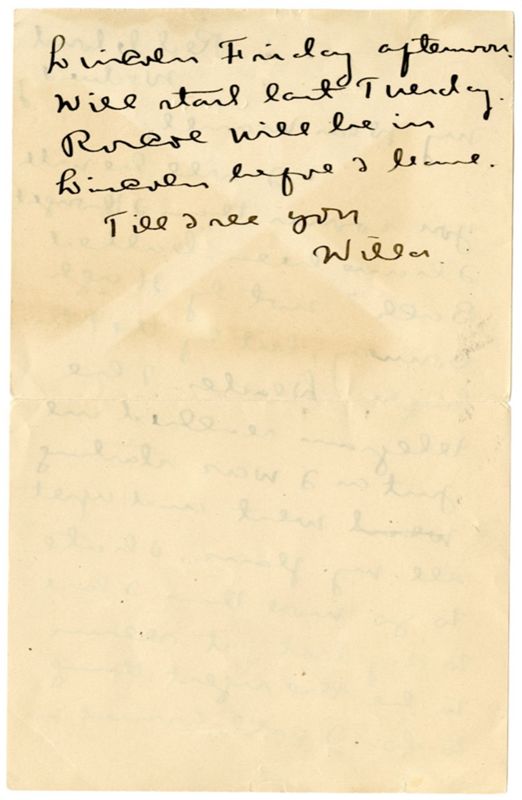 Lincoln Friday afternoon.
Will start East Tuesday.
Roscoe will be in
Lincoln before I leave.
Till I see you
Willa.